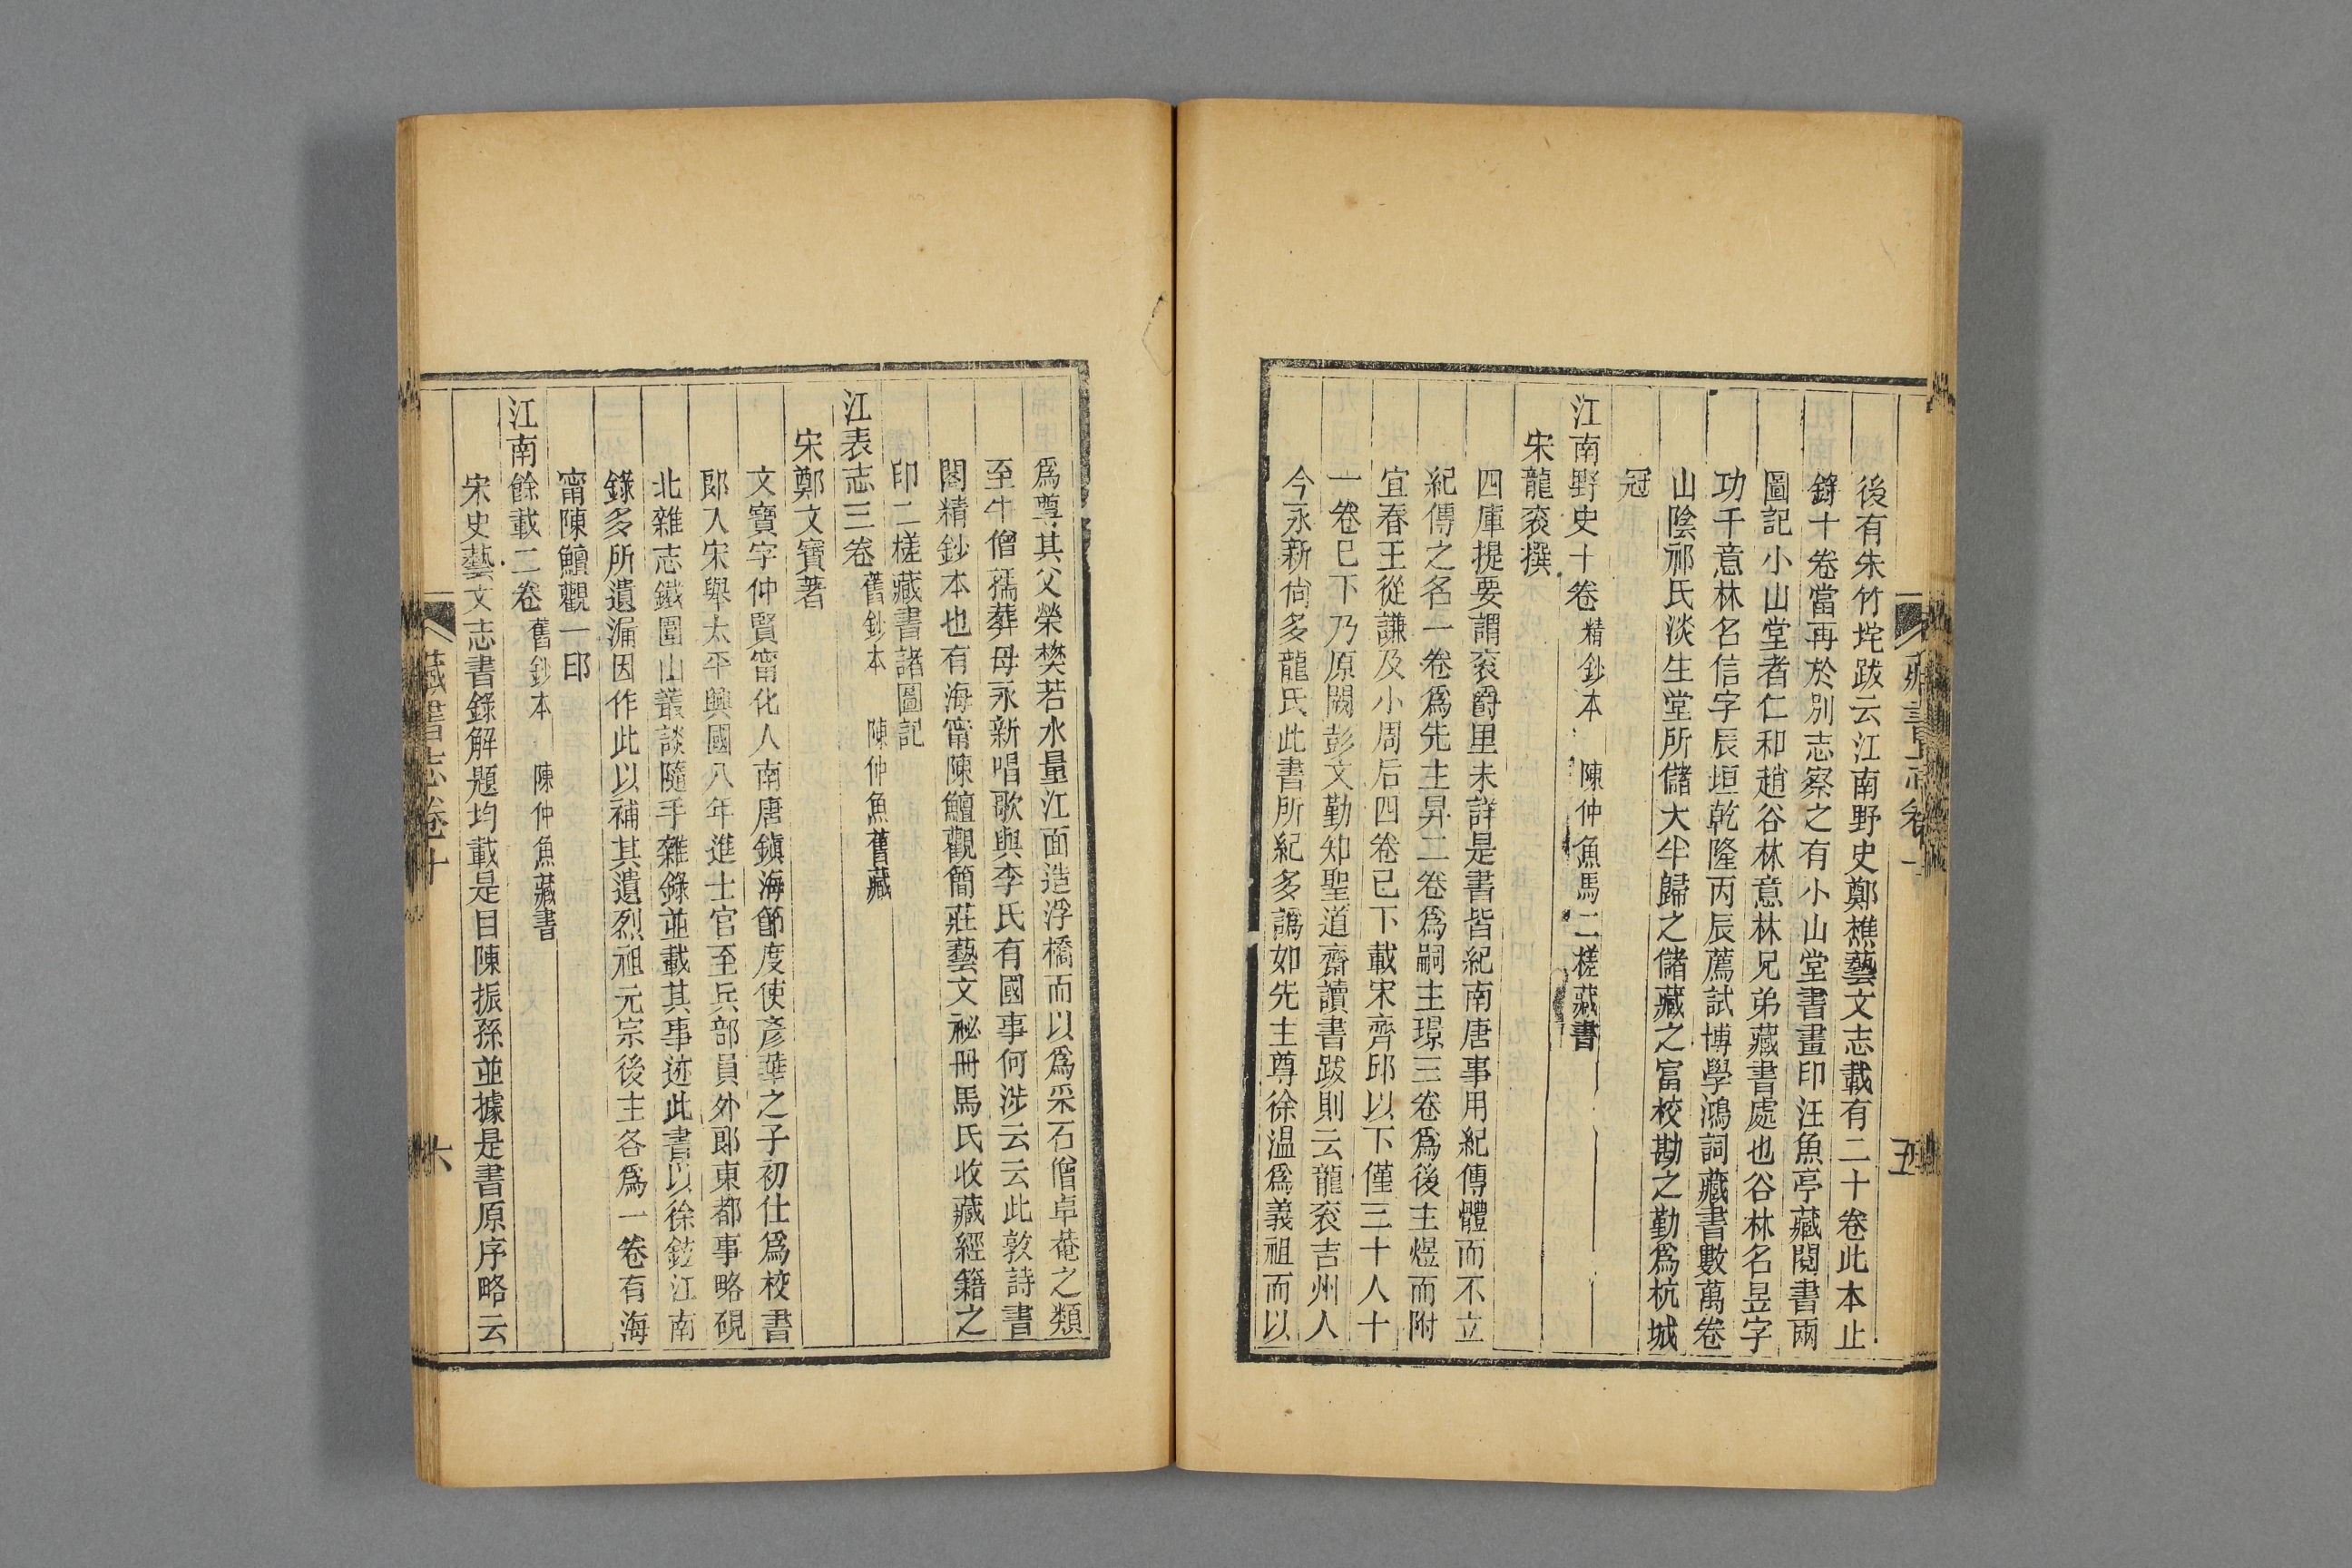 後有朱竹垞跋云江南野史鄭樵藝文志載有二十卷此本止
錄十卷當再於別志察之有小山堂書畫印汪魚亭藏閱書兩
圖記小山堂者仁和趙谷林意林兄弟藏書處也谷林名昱字
功千意林名信字辰垣乾隆丙辰薦試博學鴻詞藏書數萬卷
山陰祁氏淡生堂所儲大半歸之儲藏之富校勘之勤爲杭城
冠
江南野史十卷 精鈔本 陳仲魚馬二槎藏書
宋龍袞撰
四庫提要謂袞爵里未詳是書皆紀南唐事用紀傳體而不立
紀傳之名一卷爲先主昇二卷爲嗣主璟三卷爲後主煜而附
宜春王從謙及小周后四卷已下載宋齊邱以下僅三十人十
一卷已下乃原闕彭文勤知聖道齋讀書跋則云龍袞吉州人
今永新尙多龍氏此書所紀多譌如先主尊徐温爲義祖而以
藏書志卷十
五
爲尊其父榮樊若水量江面造浮橋而以爲采石僧卓菴之類
至牛僧孺葬母永新唱歌與李氏有國事何涉云云此敦詩書
閣精鈔本也有海甯陳鱣觀簡莊藝文祕冊馬氏收藏經籍之
印二槎藏書諸圖記
江表志三卷 舊鈔本 陳仲魚舊藏
宋鄭文寶著
文寶字仲賢甯化人南唐鎭海節度使彥華之子初仕爲校書
郎入宋舉太平興國八年進士官至兵部員外郎東都事略硯
北雜志鐵圍山叢談隨手雜錄並載其事迹此書以徐鉉江南
錄多所遺漏因作此以補其遺烈祖元宗後主各爲一卷有海
甯陳鱣觀一印
江南餘載二卷 舊鈔本 陳仲魚藏書
宋史藝文志書錄解題均載是目陳振孫並據是書原序略云
藏書志卷十
六